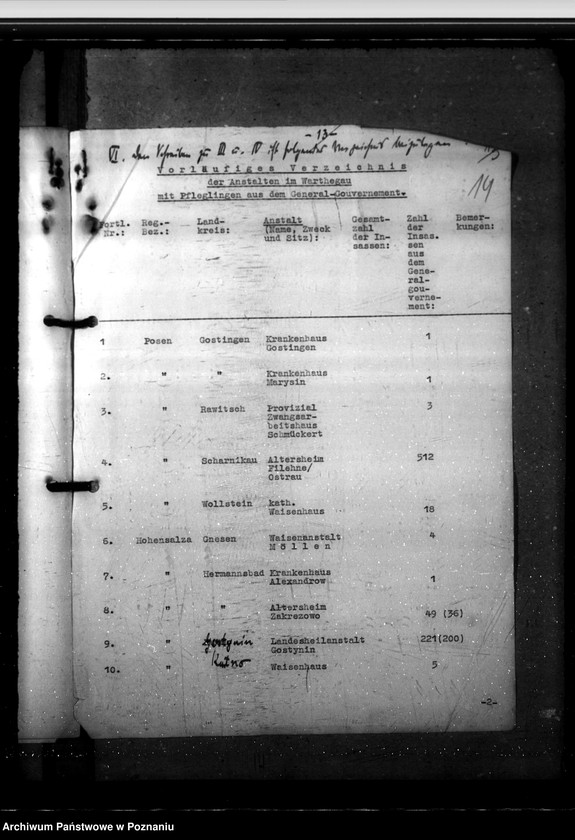 -13-
VI. Den Schreiben zu III u. IV ist folgendes Verzeichnis beizufügen
14
Vorläufiges Verzeichnis
der Anstalten im Warthegau
mit Pfleglingen aus dem General-Gouvernement.
Fortl. Nr.: Reg.-Bez.: Land-kreis: Anstalt (Name, Zweck und Sitz): Gesamt-zahl der In-sassen: Zahl der Insas.sen aus dem Gene-ral-gou-verne-ment: Bemer-kungen:
1 Posen Gostingen Krankenhaus 1
Gostingen
2. " " Krankenhaus
Marysin 1
3. " Rawitsch Provizial 3
Zwangsar-
beitshaus
Schmückert
4. " Scharnikau Altersheim 512
Filehne/
Ostrau
5. " Wollstein kath.
Waisenhaus 18
6. Hohensalza Gnesen Waisenanstalt 4
Möllen
7. " Hermannsbad Krankenhaus
Alexandrow 1
8. " " Altersheim
Zakrezowo 49 (36)
9. " Gostynin Landesheilanstalt 221(200)
Gostynin
10. " Kutno Waisenhaus 5
-2-
Archiwum Państwowe w Poznaniu